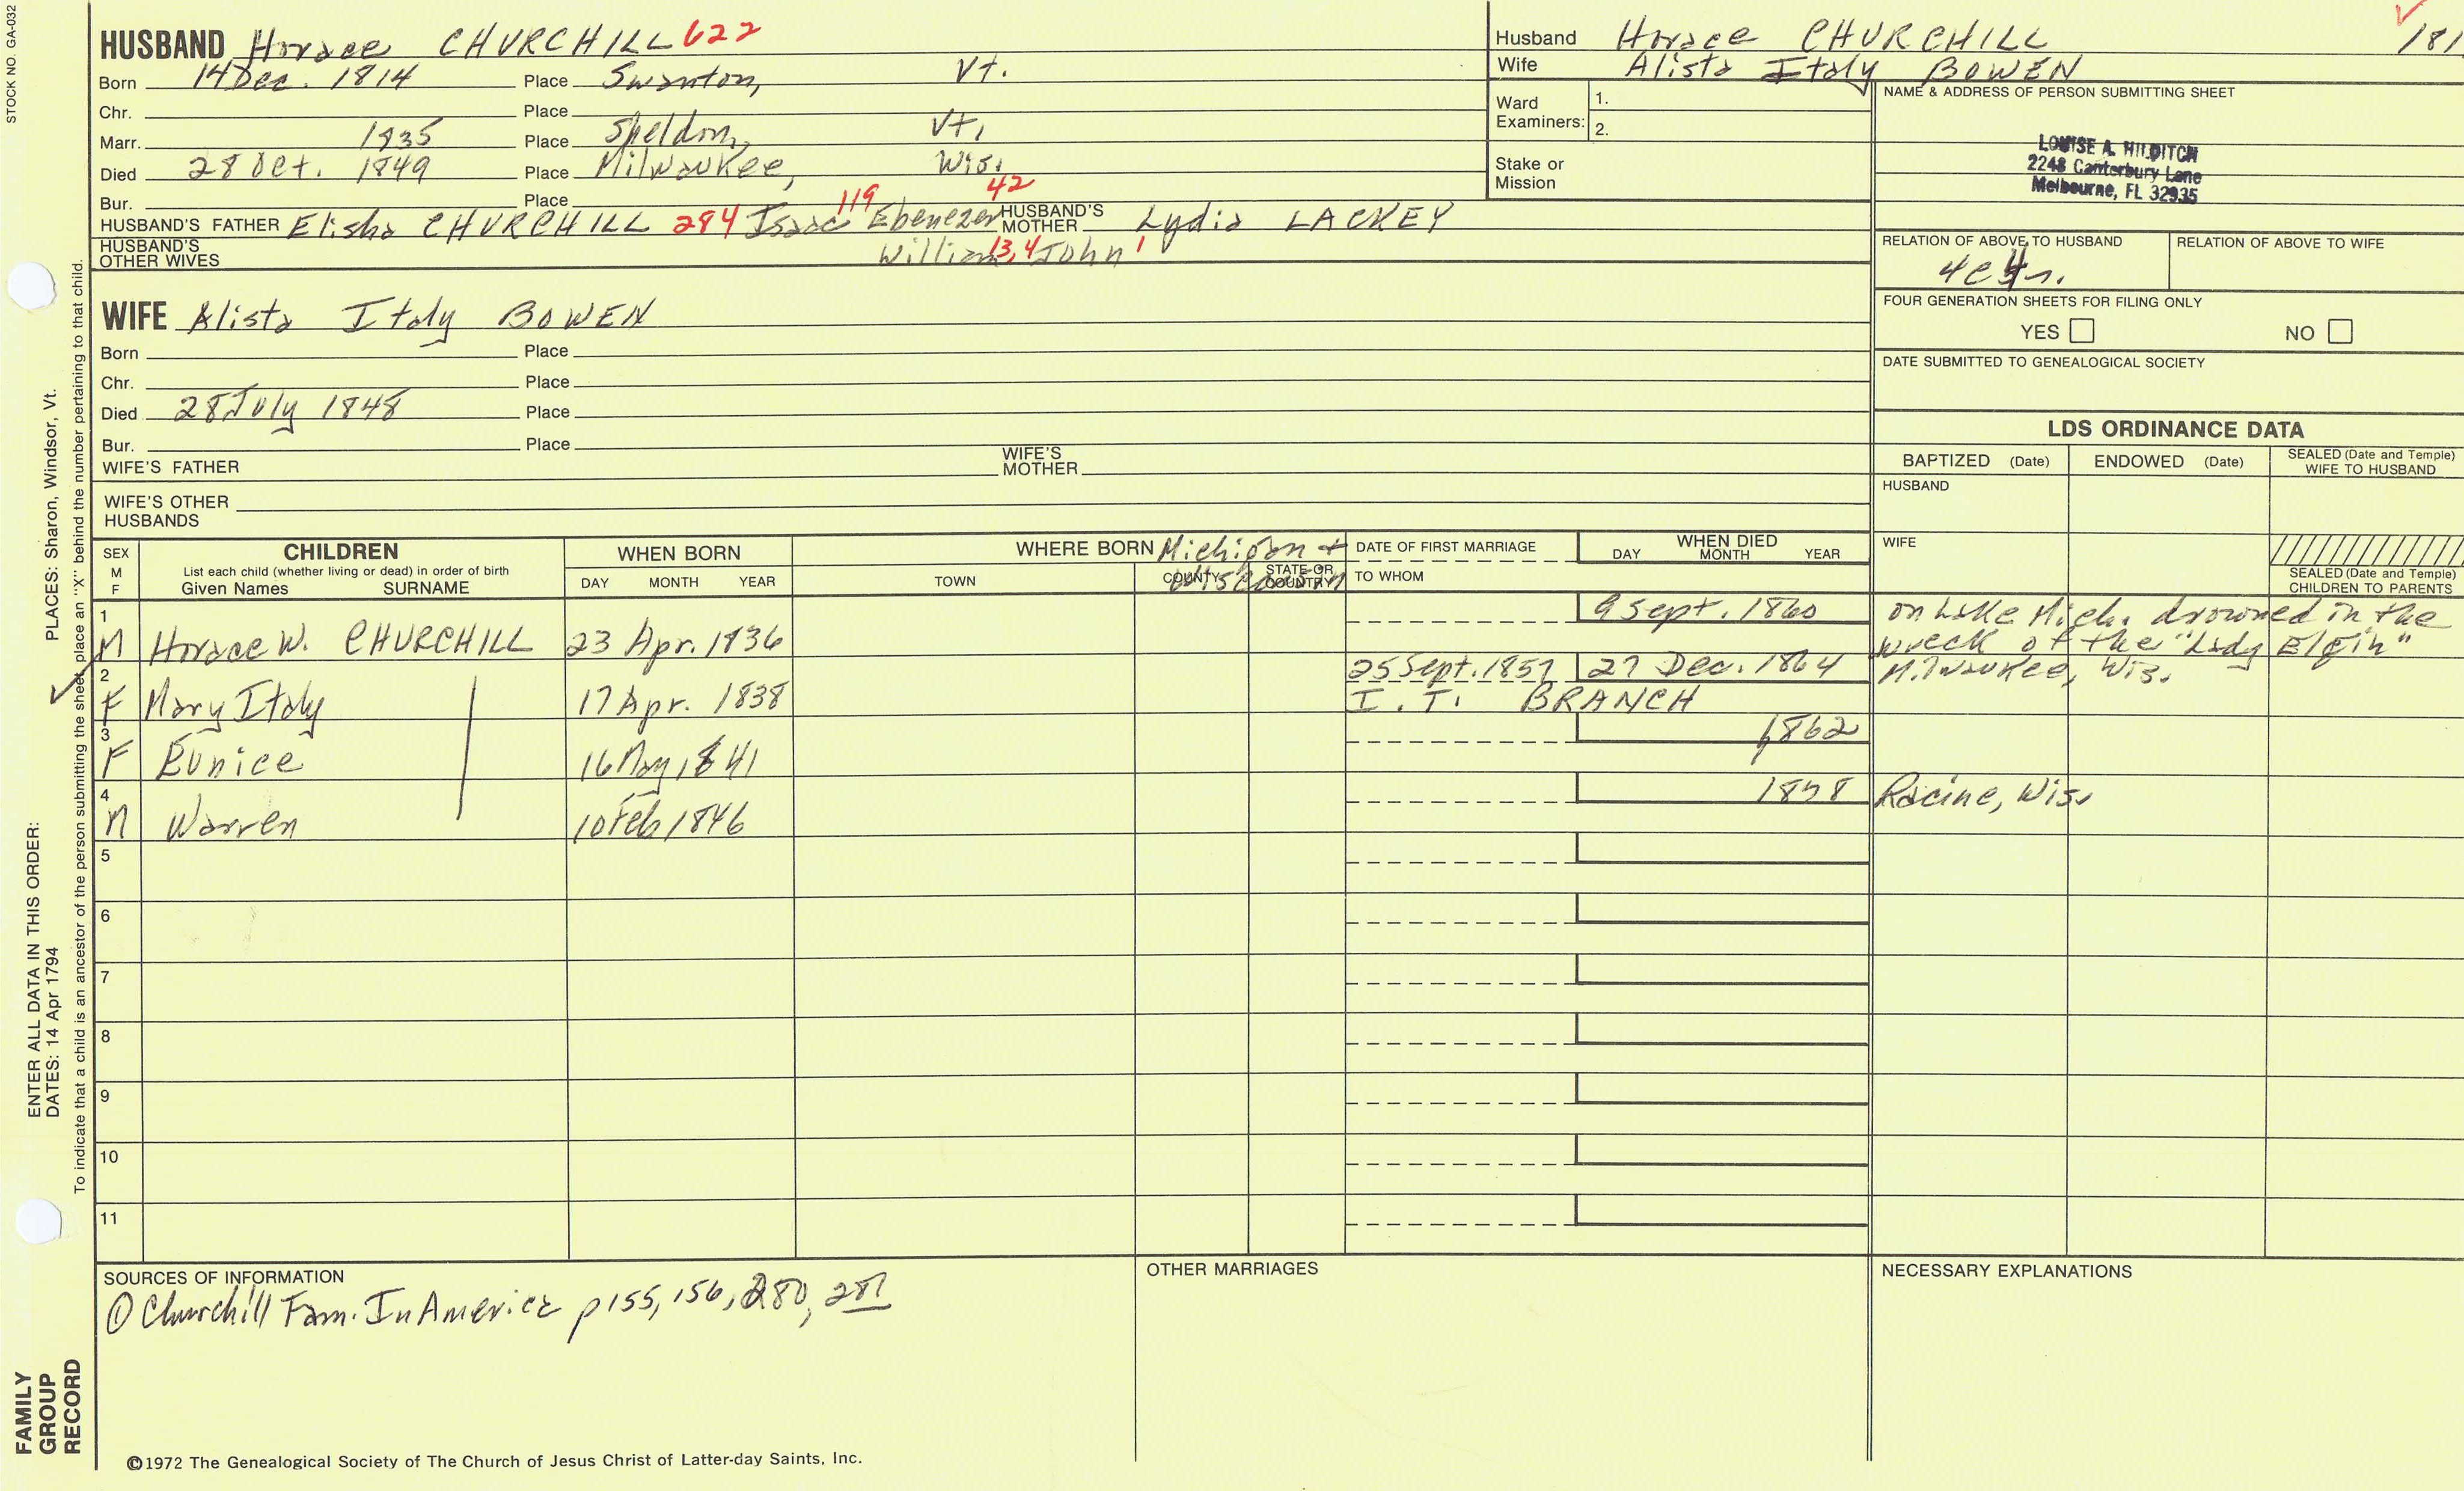 STOCK NO. GA-032
HUSBAND Horace CHURCHILL 622
Born 14 Dec. 1814 Place Swanton, Vt.
Chr. Place
Marr. 1835 Place Sheldon, Vt.
Died 28 Oct. 1849 Place Milwaukee, Wis.
Bur. Place
HUSBAND'S FATHER Elisha CHURCHILL 284 Isaac 119 Ebenezer 42 HUSBAND'S MOTHER Lydia LACKEY
HUSBAND'S OTHER WIVES William 13,4 John 1
Husband Horace CHURCHILL
Wife Alista Italy BOWEN
181
Ward Examiners: 1.
2.
Stake or Mission
NAME & ADDRESS OF PERSON SUBMITTING SHEET
LOUISE A. HILDITCH
2248 Canterbury Lane
Melbourne, FL 32935
RELATION OF ABOVE TO HUSBAND RELATION OF ABOVE TO WIFE
4c4r.
FOUR GENERATION SHEETS FOR FILING ONLY
YES NO
DATE SUBMITTED TO GENEALOGICAL SOCIETY
WIFE Alista Italy BOWEN
Born Place
Chr. Place
Died 28 July 1848 Place
Bur. Place
WIFE'S FATHER WIFE'S MOTHER
WIFE'S OTHER HUSBANDS
LDS ORDINANCE DATA
BAPTIZED (Date) ENDOWED (Date) SEALED (Date and Temple) WIFE TO HUSBAND
HUSBAND
WIFE
SEALED (Date and Temple) CHILDREN TO PARENTS
SEX M F
CHILDREN
List each child (whether living or dead) in order of birth
Given Names SURNAME
WHEN BORN
DAY MONTH YEAR
WHERE BORN Michigan + Wisconsin
TOWN COUNTY STATE OR COUNTRY
DATE OF FIRST MARRIAGE
TO WHOM
WHEN DIED
DAY MONTH YEAR
1 M Horace W. CHURCHILL 23 Apr. 1836 9 Sept. 1860 on Lake Mich. drowned in the
wreck of the "Lady Elgin"
2 F Mary Italy 17 Apr. 1838 25 Sept. 1857 27 Dec. 1864 Milwaukee, Wis.
I. T. BRANCH
3 F Eunice 16 May 1841 1862
4 M Warren 10 Feb 1846 1858 Racine, Wis.
5
6
7
8
9
10
11
SOURCES OF INFORMATION
① Churchill Fam. In America p155, 156, 280, 281
OTHER MARRIAGES
NECESSARY EXPLANATIONS
©1972 The Genealogical Society of The Church of Jesus Christ of Latter-day Saints, Inc.
FAMILY GROUP RECORD
ENTER ALL DATA IN THIS ORDER:
DATES: 14 Apr 1794
PLACES: Sharon, Windsor, Vt.
To indicate that a child is an ancestor of the person submitting the sheet, place an "X" behind the number pertaining to that child.